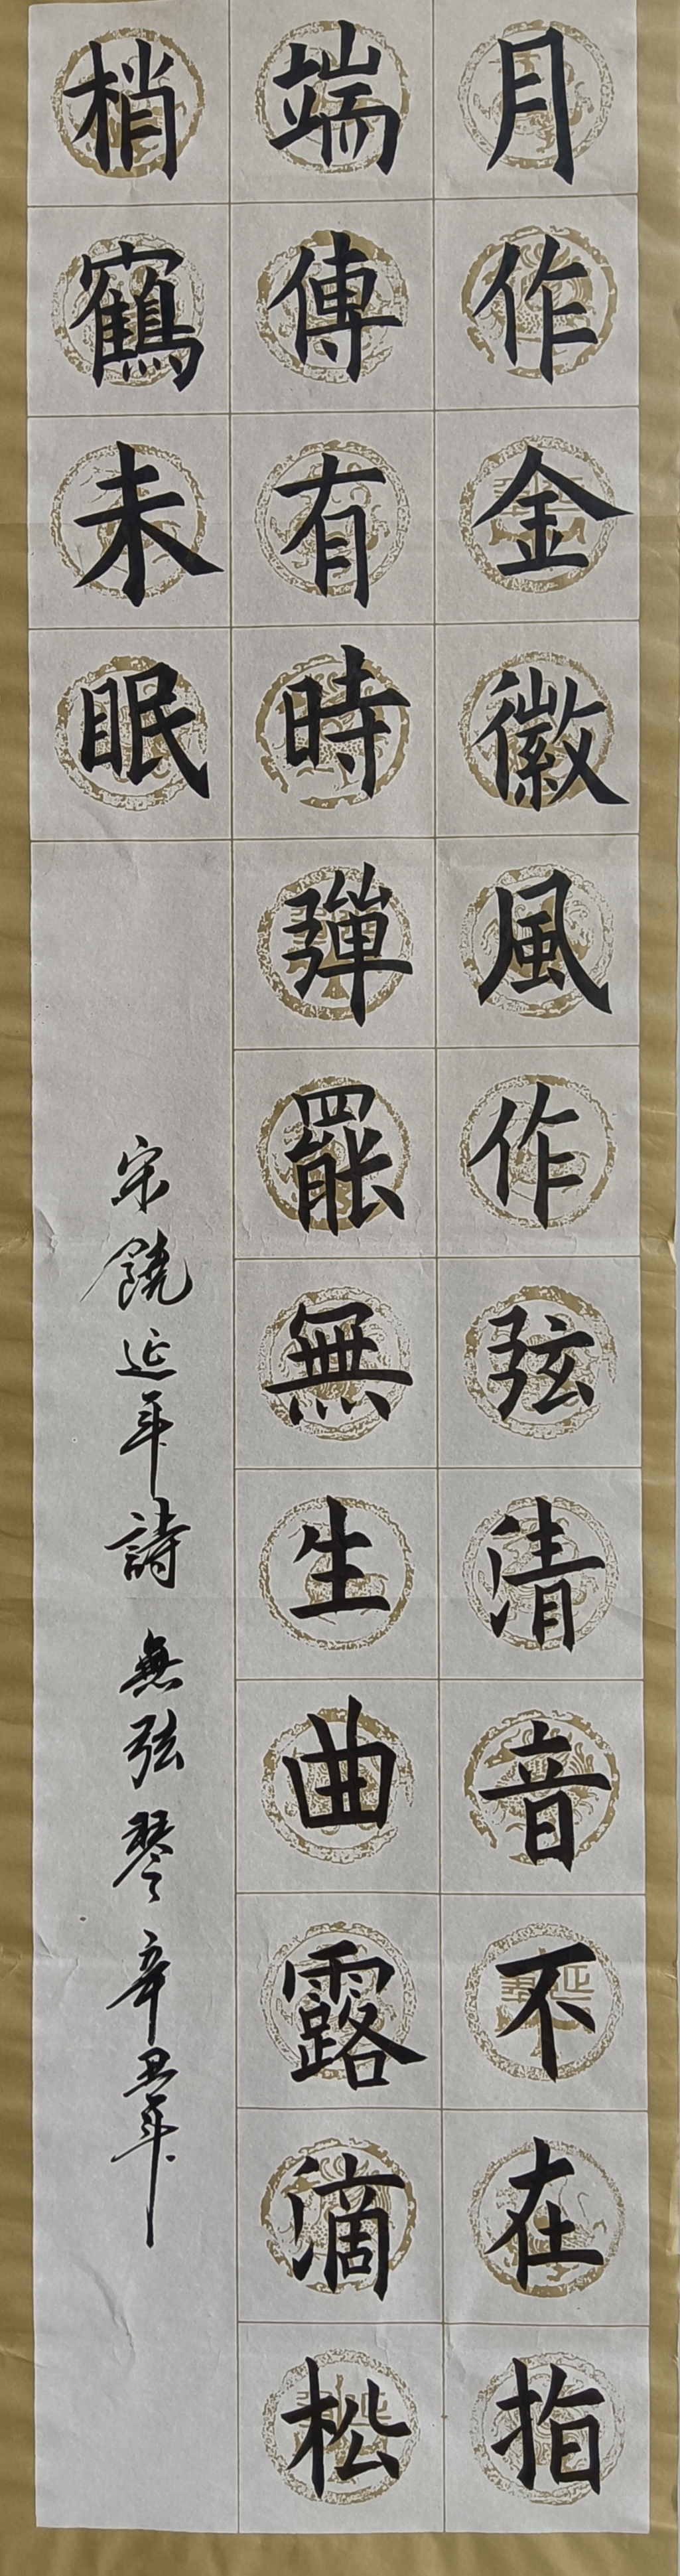 月作金徽風作弦清音不在指
端傳有時彈罷無生曲露滴松
梢鶴未眠
宋饒延年詩無弦琴辛丑年